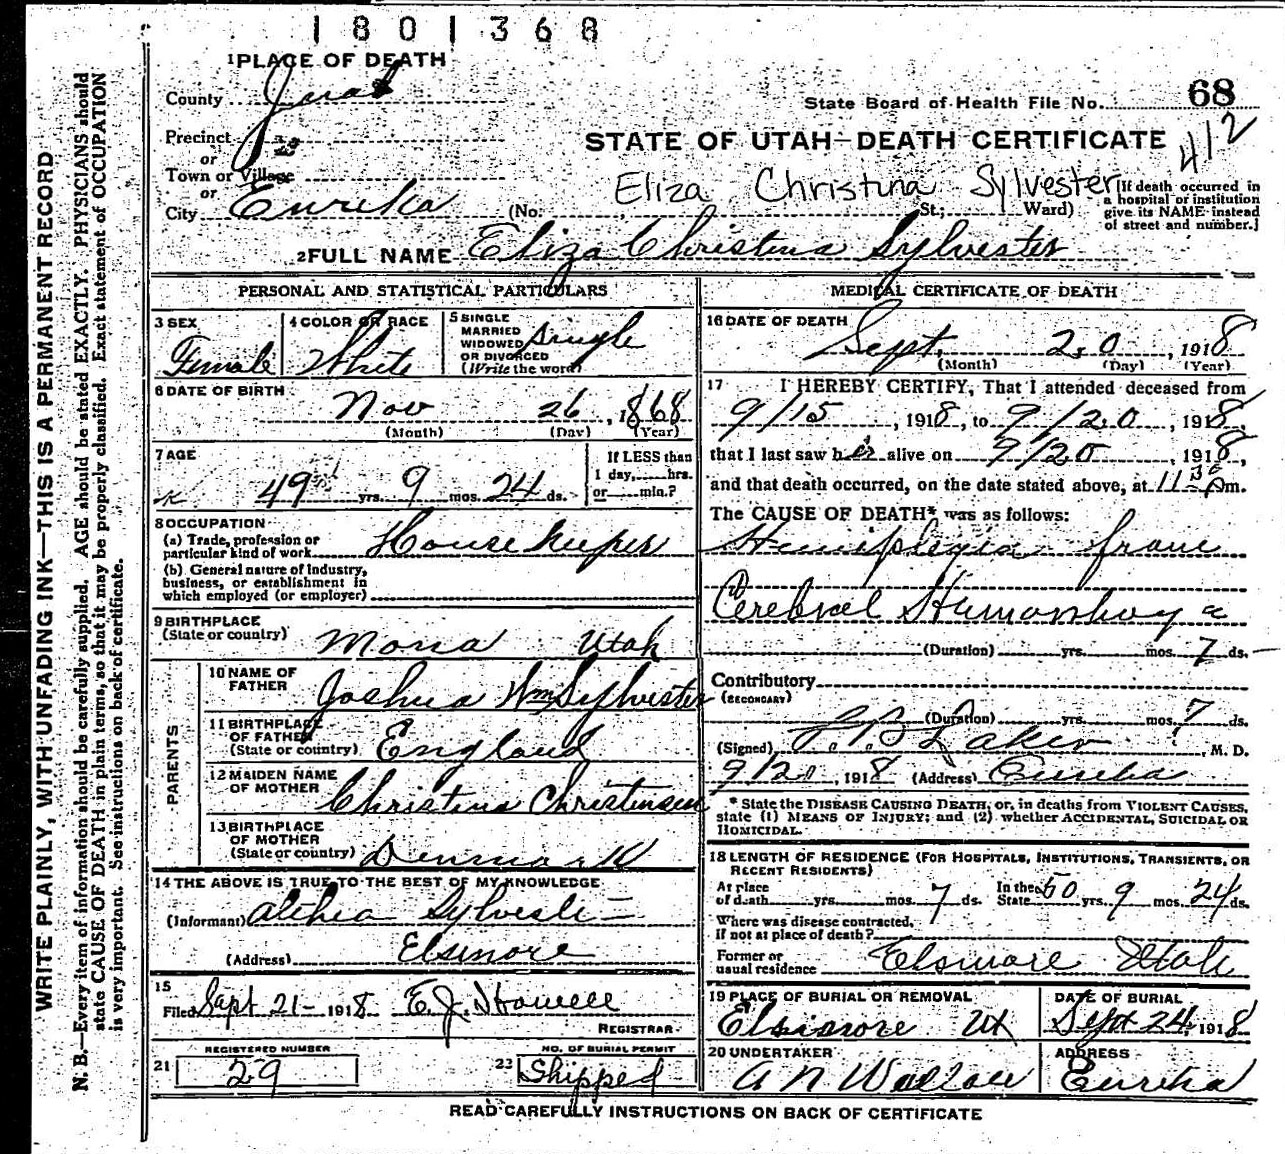 1801368
1 PLACE OF DEATH
County Juab
State Board of Health File No. 68
412
Precinct
or
STATE OF UTAH—DEATH CERTIFICATE
Town or Village
or
Eliza Christina Sylvester
City Eureka (No. St.; Ward)
[If death occurred in
a hospital or institution
give its NAME instead
of street and number.]
2 FULL NAME Eliza Christina Sylvester
PERSONAL AND STATISTICAL PARTICULARS
3 SEX
Female
4 COLOR OR RACE
White
5 SINGLE
MARRIED
WIDOWED
OR DIVORCED
(Write the word)
Single
6 DATE OF BIRTH
Nov 26, 1868
(Month) (Day) (Year)
7 AGE
49 yrs. 9 mos. 24 ds.
If LESS than
1 day, hrs.
or min.?
8 OCCUPATION
(a) Trade, profession or
particular kind of work House keeper
(b) General nature of industry,
business, or establishment in
which employed (or employer)
9 BIRTHPLACE
(State or country) Mona Utah
PARENTS
10 NAME OF
FATHER Joshua Wm Sylvester
11 BIRTHPLACE
OF FATHER
(State or country) England
12 MAIDEN NAME
OF MOTHER Christina Christensen
13 BIRTHPLACE
OF MOTHER
(State or country) Denmark
14 THE ABOVE IS TRUE TO THE BEST OF MY KNOWLEDGE
(Informant) Althea Sylvester
(Address) Elsinore
15
Filed Sept 21 - 1918 E. J. Howell
REGISTRAR
REGISTERED NUMBER
21 29
NO. OF BURIAL PERMIT
22 Shipped
MEDICAL CERTIFICATE OF DEATH
16 DATE OF DEATH
Sept. 20, 1918
(Month) (Day) (Year)
17 I HEREBY CERTIFY, That I attended deceased from
9/15, 1918, to 9/20 1918,
that I last saw her alive on 9/20, 1918,
and that death occurred, on the date stated above, at 11-30 Pm.
The CAUSE OF DEATH* was as follows:
Hemiplegia from
Cerebral
(Duration) yrs. mos. 7 ds.
Contributory
(SECONDARY)
(Duration) yrs. mos. 7 ds.
(Signed) , M. D.
9/20, 1918 (Address) Eureka
* State the DISEASE CAUSING DEATH, or, in deaths from VIOLENT CAUSES,
state (1) MEANS OF INJURY; and (2) whether ACCIDENTAL, SUICIDAL OR
HOMICIDAL.
18 LENGTH OF RESIDENCE (FOR HOSPITALS, INSTITUTIONS, TRANSIENTS, OR
RECENT RESIDENTS)
At place
of death yrs. mos. 7 ds.
In the
State 50 yrs. 9 mos. 24 ds.
Where was disease contracted,
If not at place of death?
Former or
usual residence Elsinore Utah
19 PLACE OF BURIAL OR REMOVAL
Elsinore Ut
DATE OF BURIAL
Sept 24, 1918
20 UNDERTAKER
A N Wallace
ADDRESS
Eureka
READ CAREFULLY INSTRUCTIONS ON BACK OF CERTIFICATE
WRITE PLAINLY, WITH UNFADING INK—THIS IS A PERMANENT RECORD
N. B.—Every item of information should be carefully supplied. AGE should be stated EXACTLY. PHYSICIANS should
state CAUSE OF DEATH in plain terms, so that it may be properly classified. Exact statement of OCCUPATION
is very important. See instructions on back of certificate.